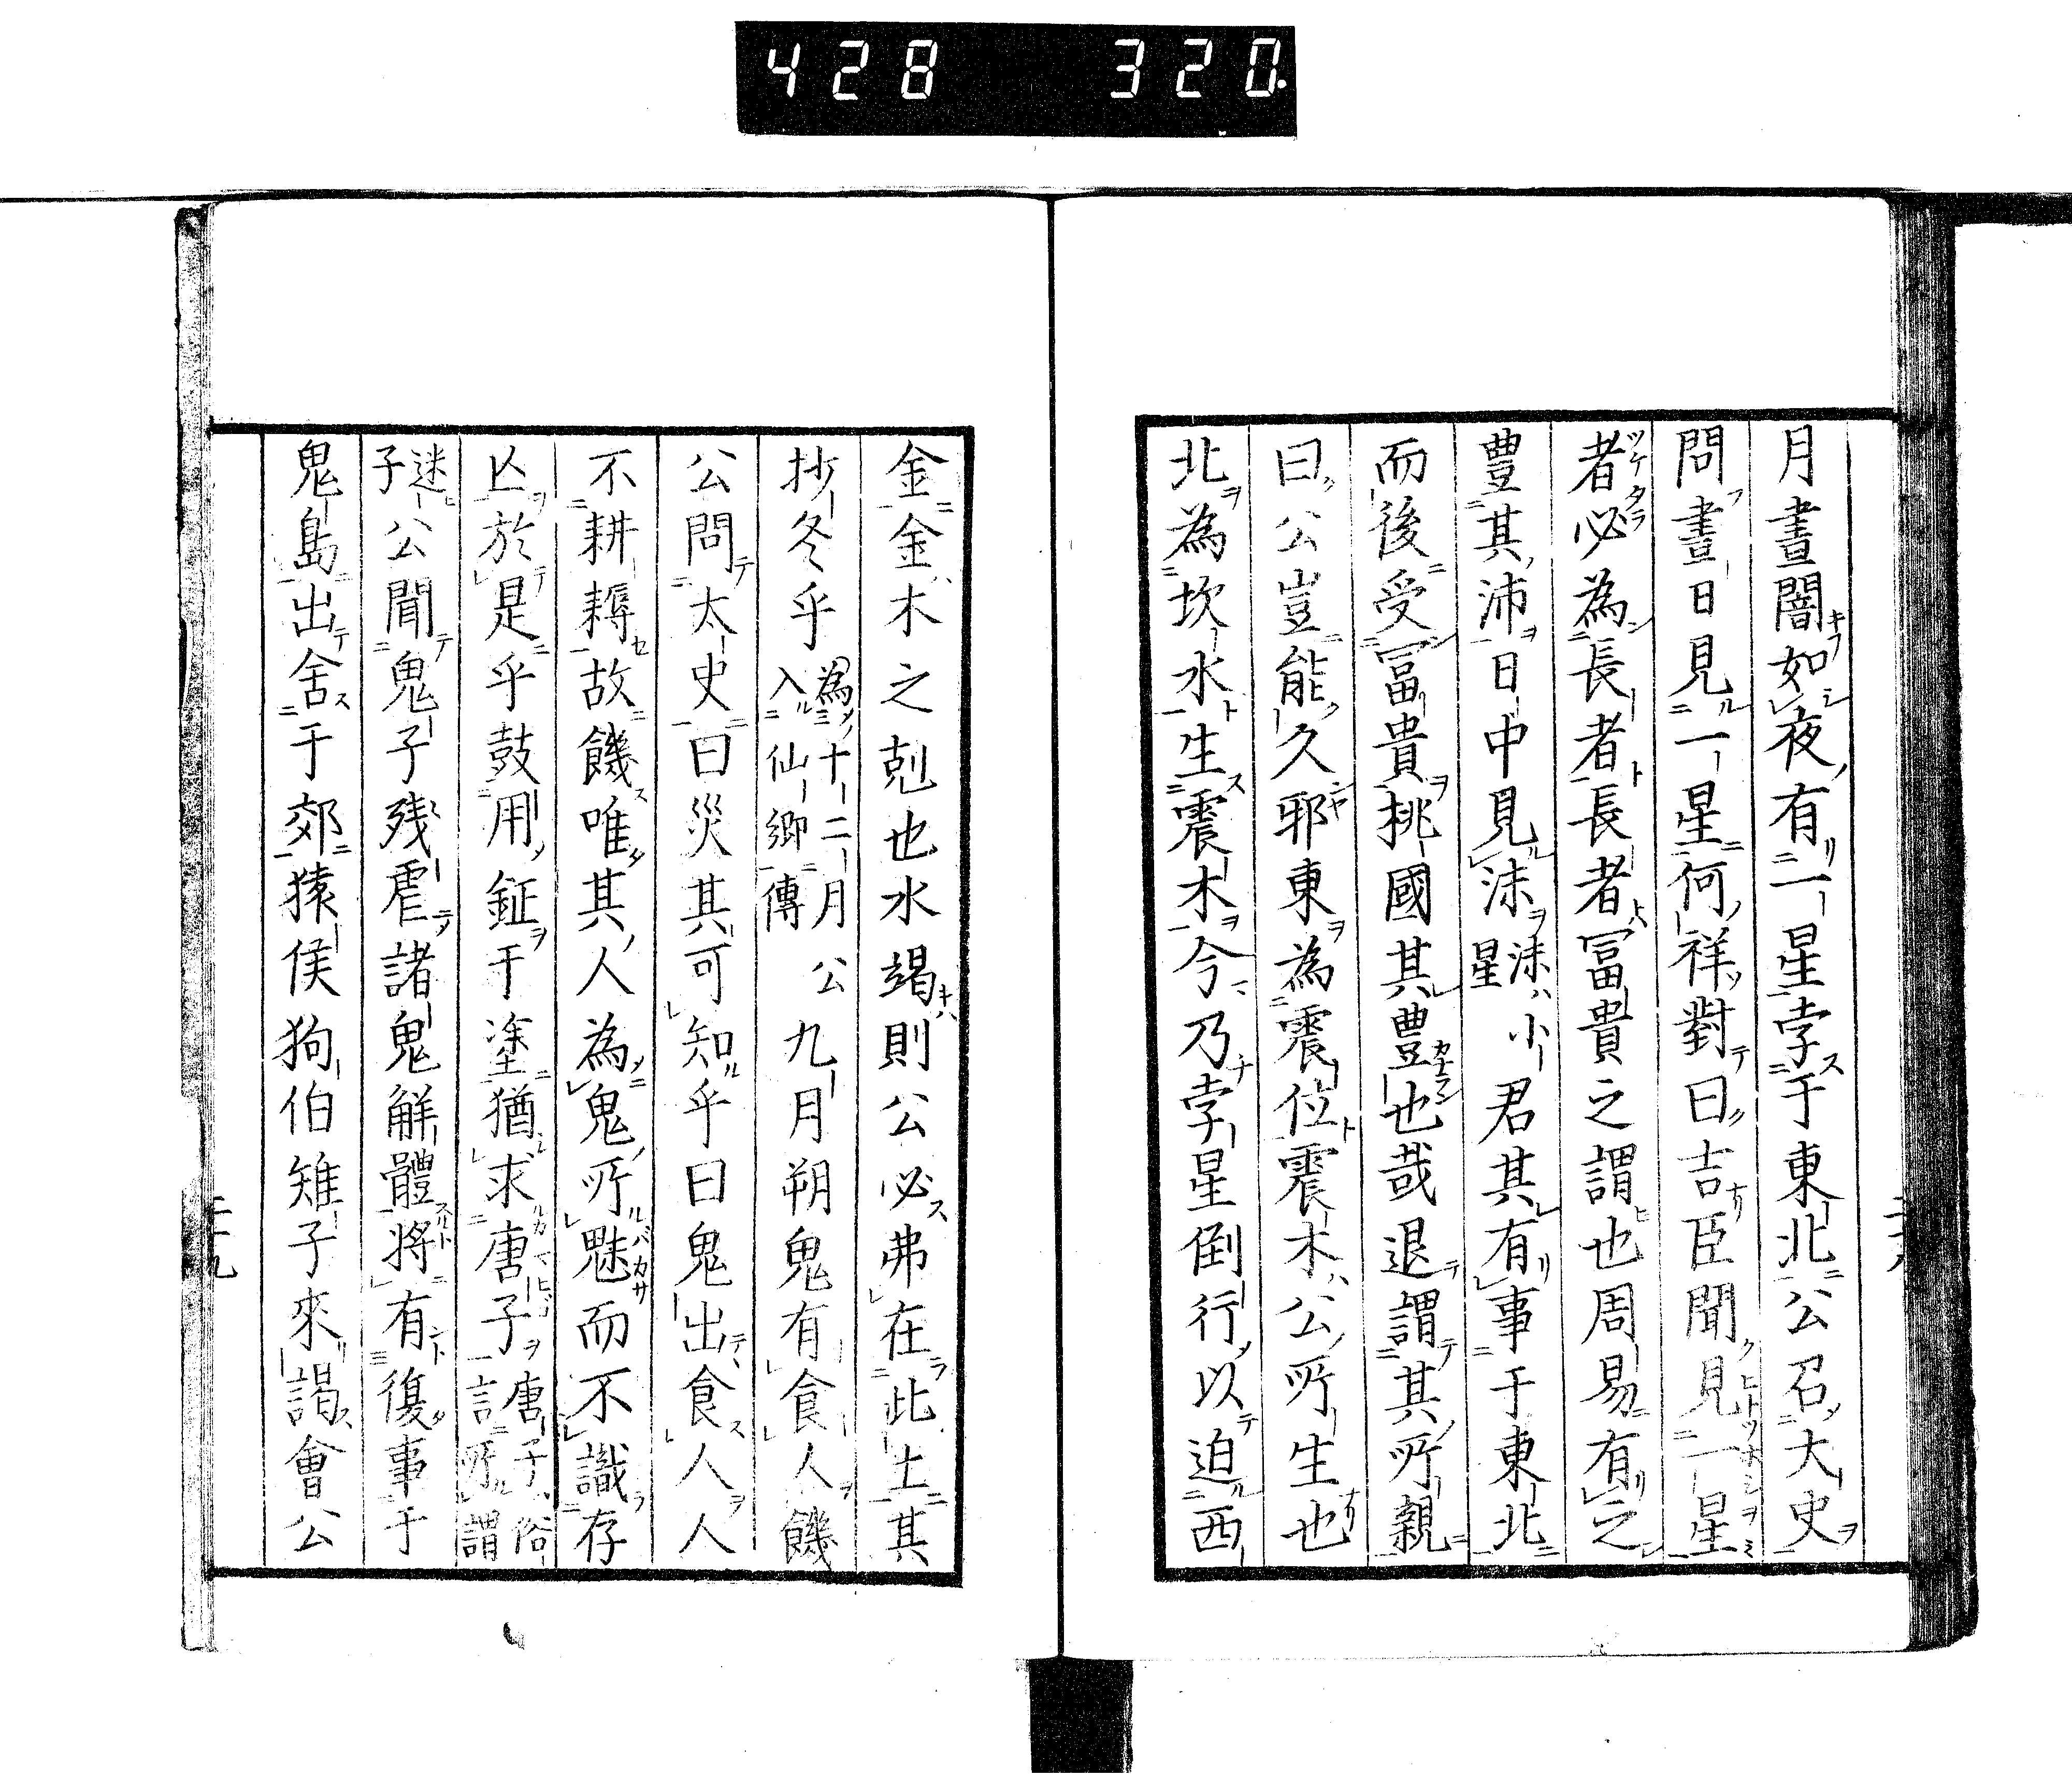 428 320.
月晝闇如夜有一星孛于東北公召大史
問晝日見一星何祥對曰吉臣聞見一星
者必為長者長者冨貴之謂也周易有之
豊其沛日中見沬沬小星君其有事于東北
而後受冨貴桃國其豊也哉退謂其所親
曰公豈能久邪東為震位震木公所生也
北為坎水生震木今乃孛星倒行以迫西
金金木之剋也水竭則公必弗在此土其
抄冬乎為十二月公入仙鄉傳九月朔鬼有食人饑
公問太史曰災其可知乎曰鬼出食人人
不耕耨故饑唯其人為鬼所魅而不識存
亾於是乎鼓用鉦于塗猶求唐子唐子俗言所謂
迷子公聞鬼子殘虐諸鬼解體將有復事于
鬼島出舍于郊猿侯狗伯雉子來謁會公
二十九